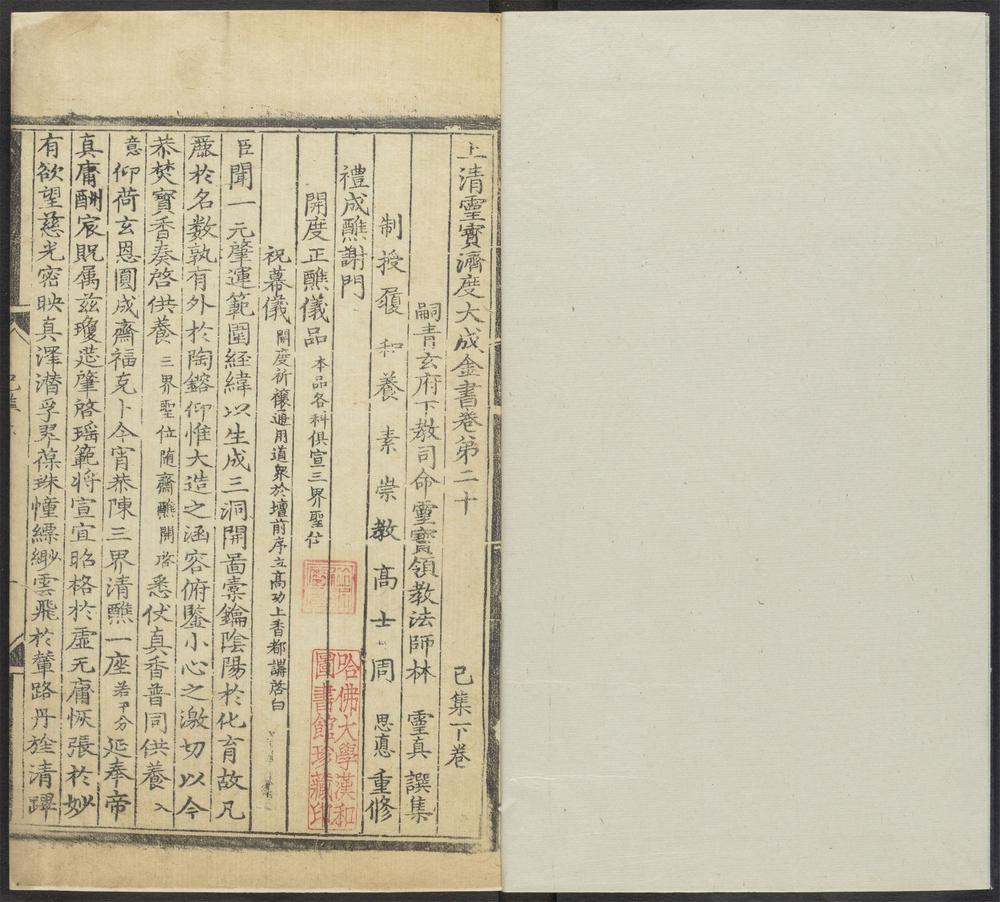 上清靈寶濟度大成金書卷第二十
嗣青玄府下教司命靈寶領教法師林 靈真 譔集 己集下卷
制授履和養素崇教高士周 思悳 重修
禮成醮謝門
開度正醮儀品 本品各科俱宣三界聖位
祝幕儀 開度祈禳通用道衆於壇前序立高功上香都講啓白
臣聞一元肇運範圍經緯以生成三洞開啚橐鑰陰陽於化育故凡
麗於名数孰有外於陶鎔仰惟大造之涵容俯鑒小心之激切以今
恭焚寳香奏啓供養 三界聖位随齋醮開啓 悉伏真香普同供養 入
意 仰荷玄恩圓成齋福克卜今宵恭陳三界清醮一座 若干分 延奉帝
真庸酬宸貺属兹瓊莚肇啓瑶範将宣宜昭格於虛无庸恢張於妙
有欲望慈光密映真澤潜孚翠葆珠幢縹緲雲飛於輦路丹旌清蹕
哈佛大學漢和
圖書館珍藏印